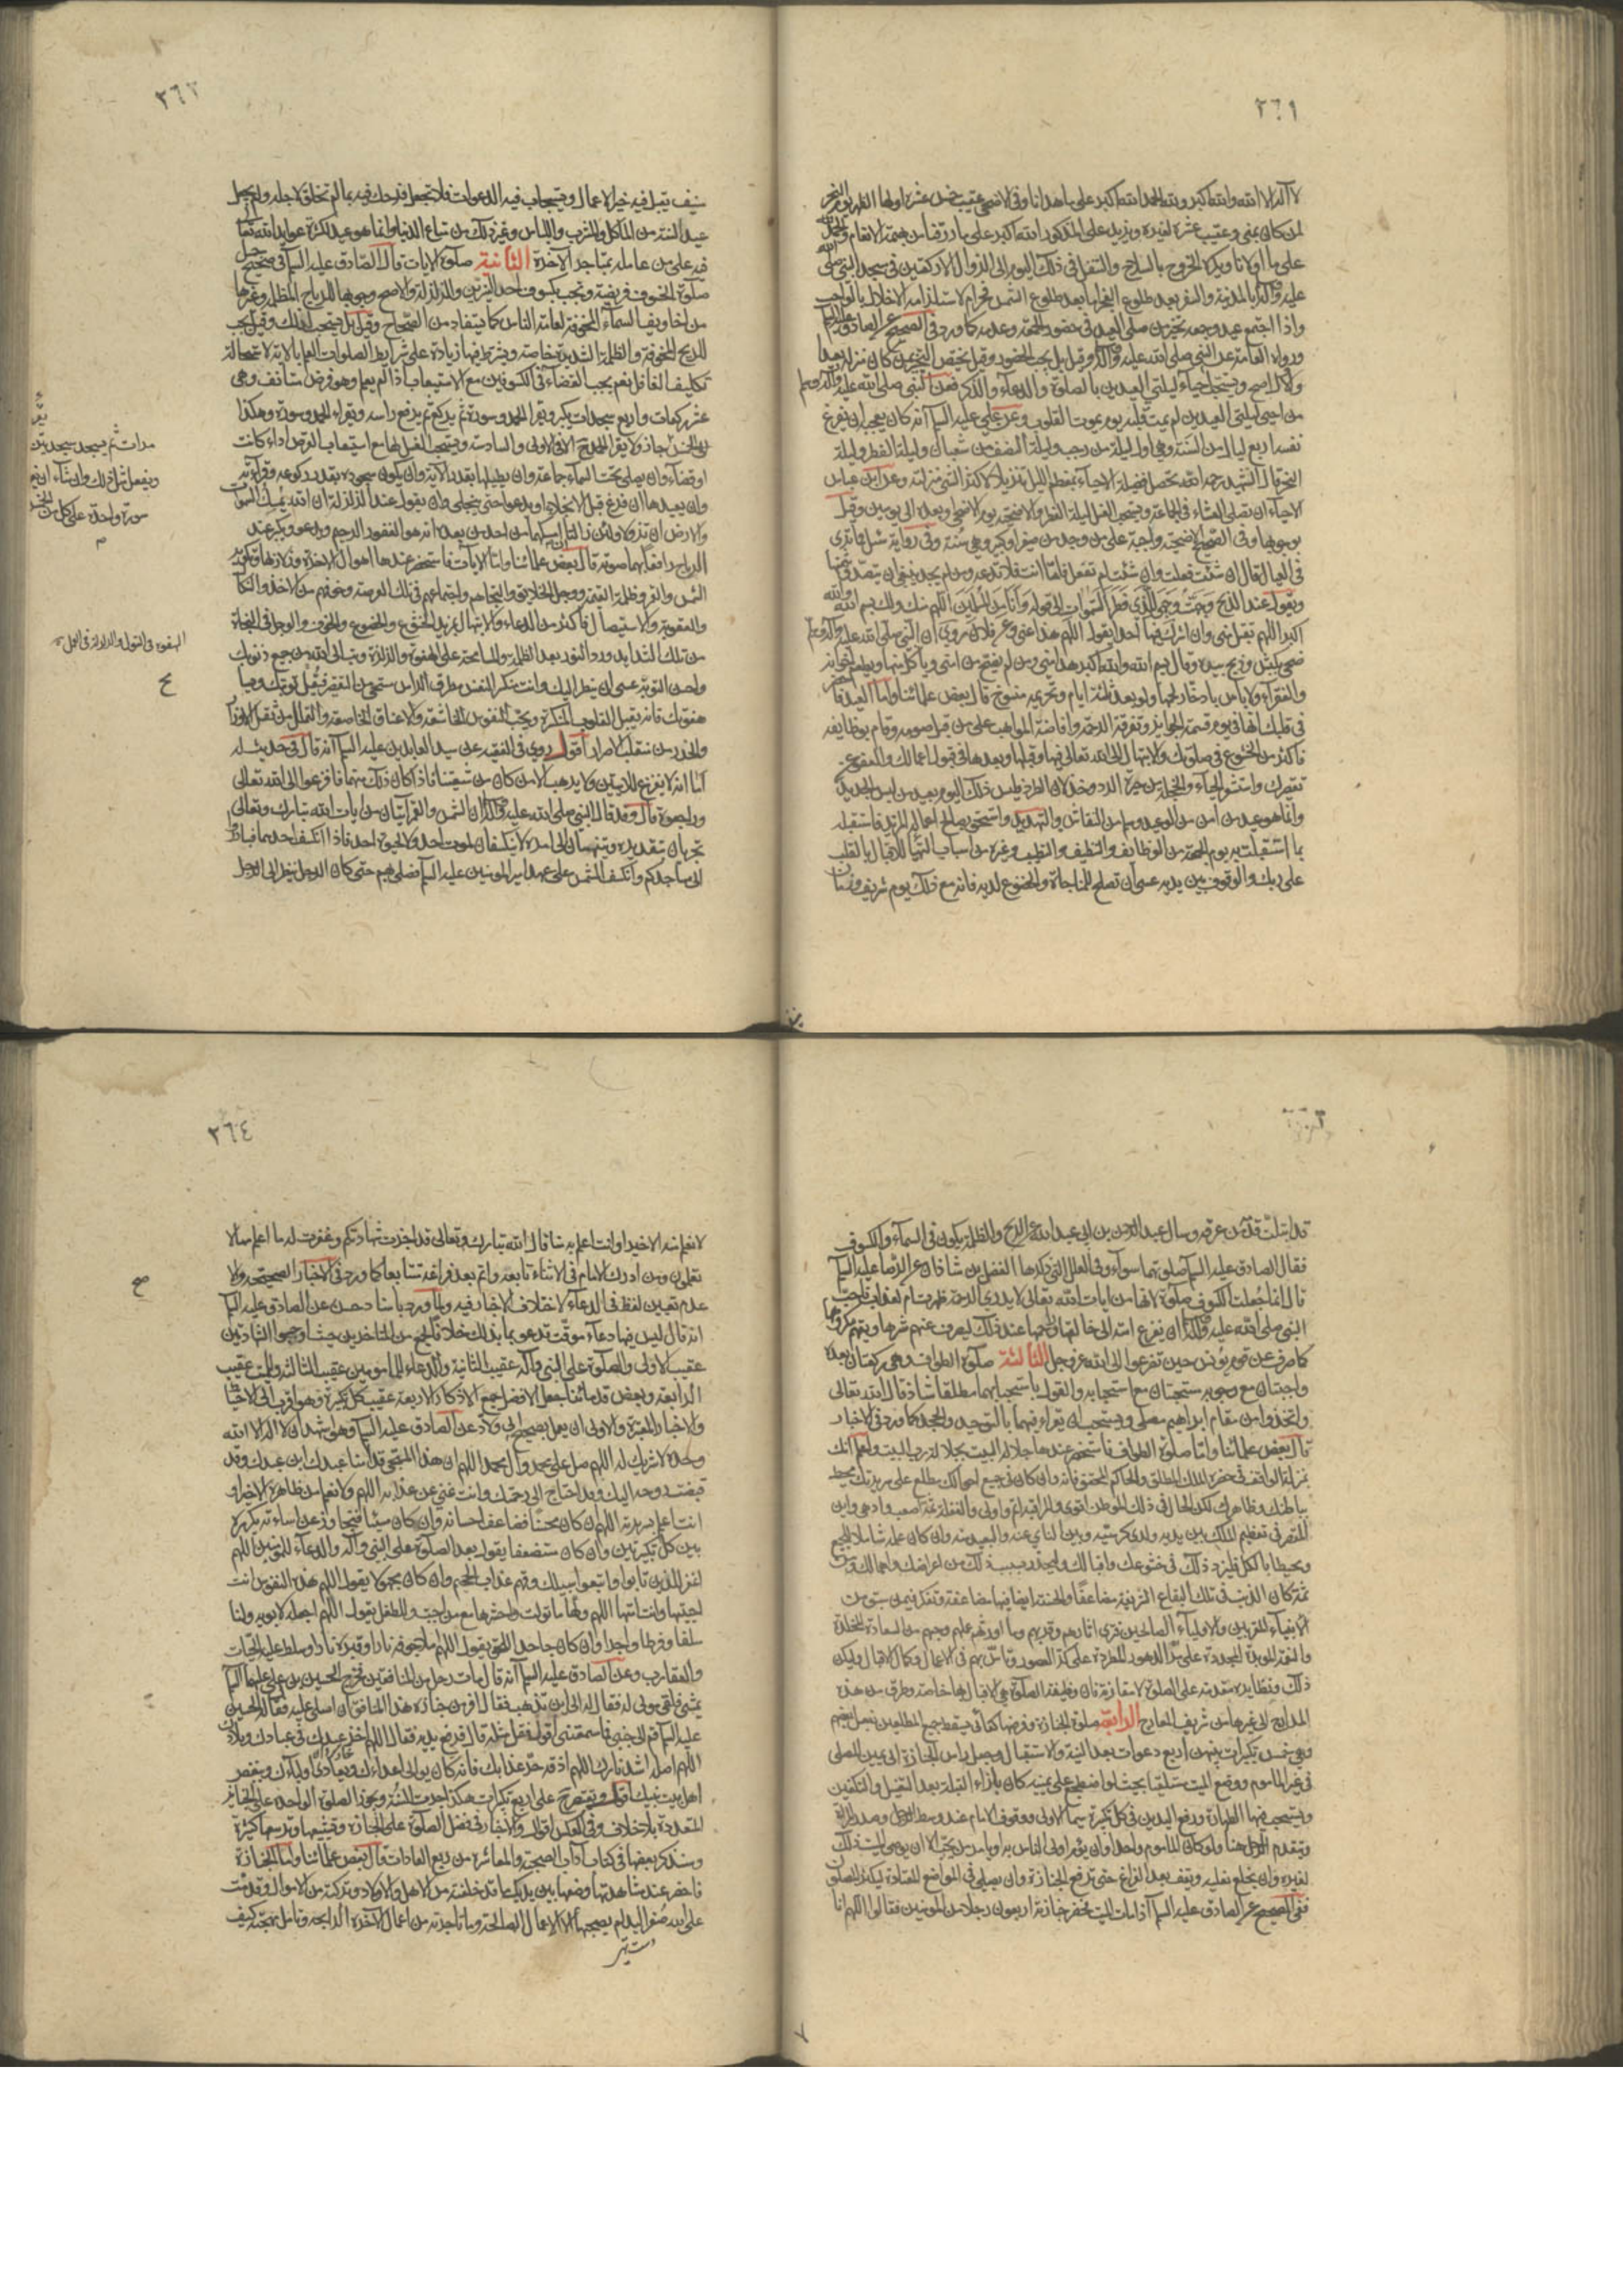 ٣٦١
لا آله الا الله والله اكبر ولله الحمد الله اكبر على ما هدانا وفى الاضحى عقيب خمس عشرة اولها الظهر يوم النحر
لمن كان بمنى وعقيب عشرة لغيره ويزيد على المذكور الله اكبر على ما رزقنا من بهيمة الانعام والحمد لله
على ما اولانا ويكره الخروج بالسلاح والتنفل فى ذلك اليوم الى الزوال الا ركعتين فى مسجد النبى صلى الله
عليه وآله بالمدينة والسفر بعد طلوع الفجر اما بعد طلوع الشمس فحرام لاستلزامه الاخلال بالواجب
واذا اجتمع عيد وجمعه تخير من صلى العيد فى حضور الجمعة وعدمه كما ورد فى الصحيح عن الصادق عليه السلام
ورواه العامة عن النبى صلى الله عليه وآله وقيل بل يجب الحضور وقيل يختص التخيير بمن كان منزله بعيدا
والاول اصح ويستحب احياء ليلتى العيدين بالصلوة والدعاء والذكر فعن النبى صلى الله عليه وآله وسلم
من احيى ليلتى العيدين لم يمت قلبه يوم يموت القلوب وعن على عليه السلام انه كان يعجبه ان يفرغ
نفسه اربع ليال من السنة وهى اول ليلة من رجب وليلة النصف من شعبان وليلة الفطر وليلة
النحر قال الشهيد رحمه الله تحصل فضيلة الاحياء بمعظم الليل تنزيلا لاكثر الشئ منزلته وعن ابن عباس
الاحياء ان يصلى العشاء فى الجماعة ويستحب الغسل ليلة الفطر والاضحية يوم الاضحى وبعده الى يومين وقيل
بوجوبها وفى الصحيح الاضحية واجبة على من وجد من صغير او كبير وهى سنة وفى رواية سئل فما ترى
فى العيال قال ان شئت فعلت وان شئت لم تفعل فاما انت فلا تدعه ومن لم يجد ينبغى ان يتصدق بثمنها
ويقول عند الذبح وجهت وجهى للذى فطر السموات الى قوله وانا من المسلمين اللهم منك ولك بسم الله والله
اكبر اللهم تقبل منى وان اشرك فيها احدا يقول اللهم هذا عنى وعن فلان روى ان النبى صلى الله عليه وآله وسلم
ضحى بكبش وذبح بيده وقال بسم الله والله اكبر هذا عنى وعن من لم يضح من امتى وياكل منها ويطعم اخوانه
والفقراء ولا باس بادخار لحمها ولو بعد ثلثة ايام وتحريمه منسوخ قال بعض علمائنا واما العيد فاحضر
فى قلبك انها فى يوم قسمة الجوايز وتفرقة الرحمة وافاضة المواهب على من قبل صومه وقام بوظايفه
فاكثر من الخشوع فى صلوتك والابتهال الى الله تعالى فيها وقبلها وبعدها فى قبول اعمالك والعفو عن
تقصيرك واستشعر الحياء والخجلة من حيرة الرد وخذلان الطرد فليس ذلك اليوم بعيد من لبس الجديد
وانما هو عيد من امن من الوعيد وسلم من النقاش والتهديد واستحق بصالح اعماله المزيد فاستقبله
بما استقبلت به يوم الجمعة من الوظايف والتنظيف والتطيب وغيره من اسباب التهيا للاقبال بالقلب
على ربك والوقوف بين يديه عسى ان تصلح للمناجاة والخضوع لديه فانه مع ذلك يوم شريف وزمان
٣٦٢
منيف تقبل فيه خير الاعمال وتستجاب فيه الدعوات فلا تجعل فرحك فيه بما لم تخلق لاجله ولم يجعل
عيد السنة من المآكل والمشرب واللباس وغير ذلك من متاع الدنيا وانما هو عيد لكثرة عوايد الله تعالى
فيه على من عامله بمتاجر الآخرة الثانية صلوة الايات قال الصادق عليه السلام فى صحيح جميل
صلوة الخسوف فريضة وتجب لكسوف احد النيرين والزلزلة والاصح وجوبها للرياح المظلمة وغيرها
من اخاويف السماء المخوفة لعامة الناس كما يستفاد من الصحاح وقيل بل يستحب لذلك وقيل يجب
للريح المخوفة والظلمة الشديدة خاصة ويشترط فيها زيادة على شرايط الصلوات العلم بالاية لاستحالة
تكليف الغافل نعم يجب القضاء فى الكسوفين مع الاستيعاب اذا لم يعلم وهو فرض مستانف وهى
عشر ركعات واربع سجدات يكبر ويقرا الحمد وسورة ثم يركع ثم يرفع راسه ويقراء الحمد وسورة وهكذا
جاز ولا يقرا الحمد ح الا فى الاولى والسادسة ويستحب الغسل لها مع استيعاب القرص اداء كانت
او قضاء وان يصلى تحت السماء جماعة وان يطيلها بقدر الآية وان يكون سجوده بقدر ركوعه وقراءته
وان يعيدها ان فرغ قبل الانجلاء او يدعو حتى ينجلى وان يقول عند الزلزلة ان الله يمسك السموات
والارض ان تزولا ولئن زالتا ان امسكهما من احد من بعده انه هو الغفور الرحيم ويدعو ويكبر عند
الرياح رافعا بها صوته قال بعض علمائنا واما الايات فاستحضر عندها اهوال الاخرة وزلازلها وتكوير
الشمس والقمر وظلمة القيمة ووجل الخلايق والتجاءهم واجتماعهم فى تلك العرصة وخوفهم من الاخذ والنكال
والعقوبة والاستيصال فاكثر من الدعاء والابتهال بمزيد الخشوع والخضوع والخوف والوجل فى النجاة
من تلك الشدايد ورد النور بعد الظلمة والمسامحة على الهفوة والزلة وتب الى الله من جميع ذنوبك
واحسن التوبة عسى ان ينظر اليك وانت منكسر النفس مطرق الراس مستحى من التقصير فتقبل توبتك ويمحا
هفوتك فانه يقبل القلوب المنكسرة ويحب النفوس الخاشعة والاعناق الخاضعة والتململ من ثقل الاوزار
والحذر من منقلب الاصرار اقول روى فى الفقيه عن سيد العابدين عليه السلام انه قال فى حديث له
اما انه لا يفزع للايتين ولا يرهب الا من كان من شيعتنا فاذا كان ذلك منهما فافزعوا الى الله تعالى
وراجعوه قال وقد قال النبى صلى الله عليه وآله ان الشمس والقمر آيتان من ايات الله تبارك وتعالى
تجريان بتقديره وينتهيان الى امره لا ينكسفان لموت احد ولا لحيوة احد فاذا انكسف احدهما فبادروا
الى مساجدكم وانكسف الشمس على عهد امير المؤمنين عليه السلام فصلى بهم حتى كان الرجل ينظر الى الرجل
مرات ثم يسجد سجدتين
ويفعل مثل ذلك وان شاء ان
سورة واحدة على كل من الخمس
م
الهفوة فى القول والزلة فى الفعل
ع
قد ابتلت قدمه من عرقه وسال عبد الرحمن بن ابى عبد الله عن الريح والظلمة يكون فى السماء والكسوف
فقال الصادق عليه السلام صلوتهما سواء وفى العلل التى ذكرها الفضل بن شاذان عن الرضا عليه السلام
قال انما جعلت للكسوف صلوة لانها من ايات الله تعالى لا يدرى الرحمة ظهرت ام لعذاب فاحب
النبى صلى الله عليه وآله ان يفزع امته الى خالقها وراحمها عند ذلك ليصرف عنهم شرها ويقيهم مكروهها
كما صرف عن قوم يونس حين تضرعوا الى الله عز وجل الثالثة صلوة الطواف وهى ركعتان بعده
واجبتان مع وجوبه مستحبتان مع استحبابه والقول باستحبابهما مطلقا شاذ قال الله تعالى
واتخذوا من مقام ابراهيم مصلى ويستحب ان يقراء فيهما بالتوحيد والجحد كما ورد فى الاخبار
قال بعض علمائنا واما صلوة الطواف فاستحضر عندها جلالة البيت بجلالة رب البيت واعلم انك
بمنزلة الواقف فى حضرة الملك المطلق والحاكم المحقق فانه وان كان فى جميع احوالك مطلع على سريرتك محيط
بباطنك وظاهرك لكن الحال فى ذلك الموطن اقوى والمراقبة اتم واولى والغفلة ثمة اصعب وادهى واين
المقصر فى تعظيم الملك بين يديه ولدى كرسيه وبين النائى عنه والبعيد منه وان كان علمه شاملا للجميع
ومحيطا بالكل فليزد ذلك فى خشوعك واقبالك وليحذر بسببه ذلك من اعراضك واهمالك ومن
ثمة كان الذنب فى تلك البقاع الشريفة مضاعفا والحسنة ايضا فيها مضاعفة وتفكر فيمن سبق من
الانبياء المقربين والاولياء الصالحين فترى اثارهم وقربهم وما اورثهم علمهم وحبهم من السعادة المخلدة
والنفحة الموبدة المجددة على مر الدهور المطردة على كر العصور وتاس بهم فى الاعمال وكمال الاقبال وليكن
ذلك ونظايره مقدمة على الصلوة لا مقارنة فان وظيفة الصلوة هى الاقبال بها خاصة وترق من هذه
المدارج الى غيرها من شريف المعارج الرابعة صلوة الجنازة وفرضها كفائى يسقط عن جميع المطلعين بفعل بعضهم
وهى خمس تكبيرات بينهن اربع دعوات بعد النية والاستقبال وجعل راس الجنازة الى يمين المصلى
فى غير الماموم ووضع الميت مستلقيا بحيث لو اضطجع على يمينه كان بازاء القبلة بعد التغسيل والتكفين
ويستحب فيها الطهارة ورفع اليدين فى كل تكبيرة سيما الاولى ووقوف الامام عند وسط الرجل وصدر المراة
ويتقدم الرجل هنا ولو كان الماموم واحدا وان يؤم اولى الناس به او يامر من يحب الا ان يوصى الميت بذلك
لغيره وان يخلع نعليه ويقف بعد الفراغ حتى ترفع الجنازة وان يصلى فى المواضع المعتادة ليكثر المصلون
ففى الصحيح عن الصادق عليه السلام اذا مات الميت فحضر جنازته اربعون رجلا من المؤمنين فقالوا اللهم انا
٣٦٤
لا نعلم منه الا خيرا وانت اعلم به منا قال الله تبارك وتعالى قد اجزت شهادتكم وغفرت له ما اعلم مما لا
تعلمون ومن ادرك الامام فى الاثناء تابعه واتم بعد فراغه متتابعا كما ورد فى الاخبار الصحيحة ولا
عدم تعيين لفظ فى الدعاء لاختلاف الاخبار فيه ولما ورد باسناد حسن عن الصادق عليه السلام
انه قال ليس فيها دعاء موقت تدعو بما بدا لك خلافا لجمع من المتاخرين حيث اوجبوا الشهادتين
عقيب الاولى والصلوة على النبى وآله عقيب الثانية والدعاء للمؤمنين عقيب الثالثة وللميت عقيب
الرابعة وبعض قدمائنا جعل الافضل جمع الاذكار الاربعة عقيب كل تكبيرة وهو اقرب الى الاحتياط
والاخبار المعتبرة والاولى ان يعمل بصحيحة ابى ولاد عن الصادق عليه السلام وهو اشهد ان لا اله الا الله
وحده لا شريك له اللهم صل على محمد وآل محمد اللهم ان هذا المسجى قدامنا عبدك ابن عبدك وقد
قبضت روحه اليك وقد احتاج الى رحمتك وانت غنى عن عذابه اللهم ولا نعلم من ظاهره الا خيرا و
انت اعلم بسريرته اللهم ان كان محسنا فضاعف احسانه وان كان مسيئا فتجاوز عن اساءته يكرره
بين كل تكبيرتين وان كان مستضعفا يقول بعد الصلوة على النبى وآله والدعاء للمؤمنين اللهم
اغفر للذين تابوا واتبعوا سبيلك وقهم عذاب الجحيم وان كان مجهولا يقول اللهم هذه النفوس انت
احييتها وانت امتها اللهم ولها ما تولت واحشرها مع من احبت وللطفل يقول اللهم اجعله لابويه ولنا
سلفا وفرطا واجرا وان كان جاحدا للحق يقول اللهم املأ جوفه نارا وقبره نارا وسلط عليه الحيات
والعقارب وعن الصادق عليه السلام انه قال مات رجل من المنافقين فخرج الحسين بن على عليهما السلام
يمشى فلقى مولى له فقال له الى اين تذهب فقال افر من جنازة هذا المنافق ان اصلى عليه فقال له الحسين
عليه السلام قم الى جنبى فما سمعتنى اقول فقل مثله قال فرفع يديه فقال اللهم اخز عبدك فى عبادك وبلادك
اللهم اصله اشد نارك اللهم اذقه حر عذابك فانه كان يوالى اعداءك ويعادى اولياءك ويبغض
اهل بيت نبيك على اربع تكبيرات هكذا جرت السنة ويجوز الصلوة الواحدة على الجنائز
المتعددة بلا خلاف وفى العكس اقوال والاخبار فى فضل الصلوة على الجنازة وتشييعها وتربيعها كثيرة
وسنذكر بعضها فى كتاب آداب الصحبة والمعاشرة من ربع العادات قال بعض علمائنا واما الجنازة
فاحضر عند مشاهدتها ووضعها بين يديك ما قد خلفته من الاهل والاولاد وتركته من الاموال وقدمت
على الله صفر اليد لم يصحبها الا الاعمال الصالحة وما تاجرته من اعمال الآخرة الرابحة وتامل بهجته كيف
صح